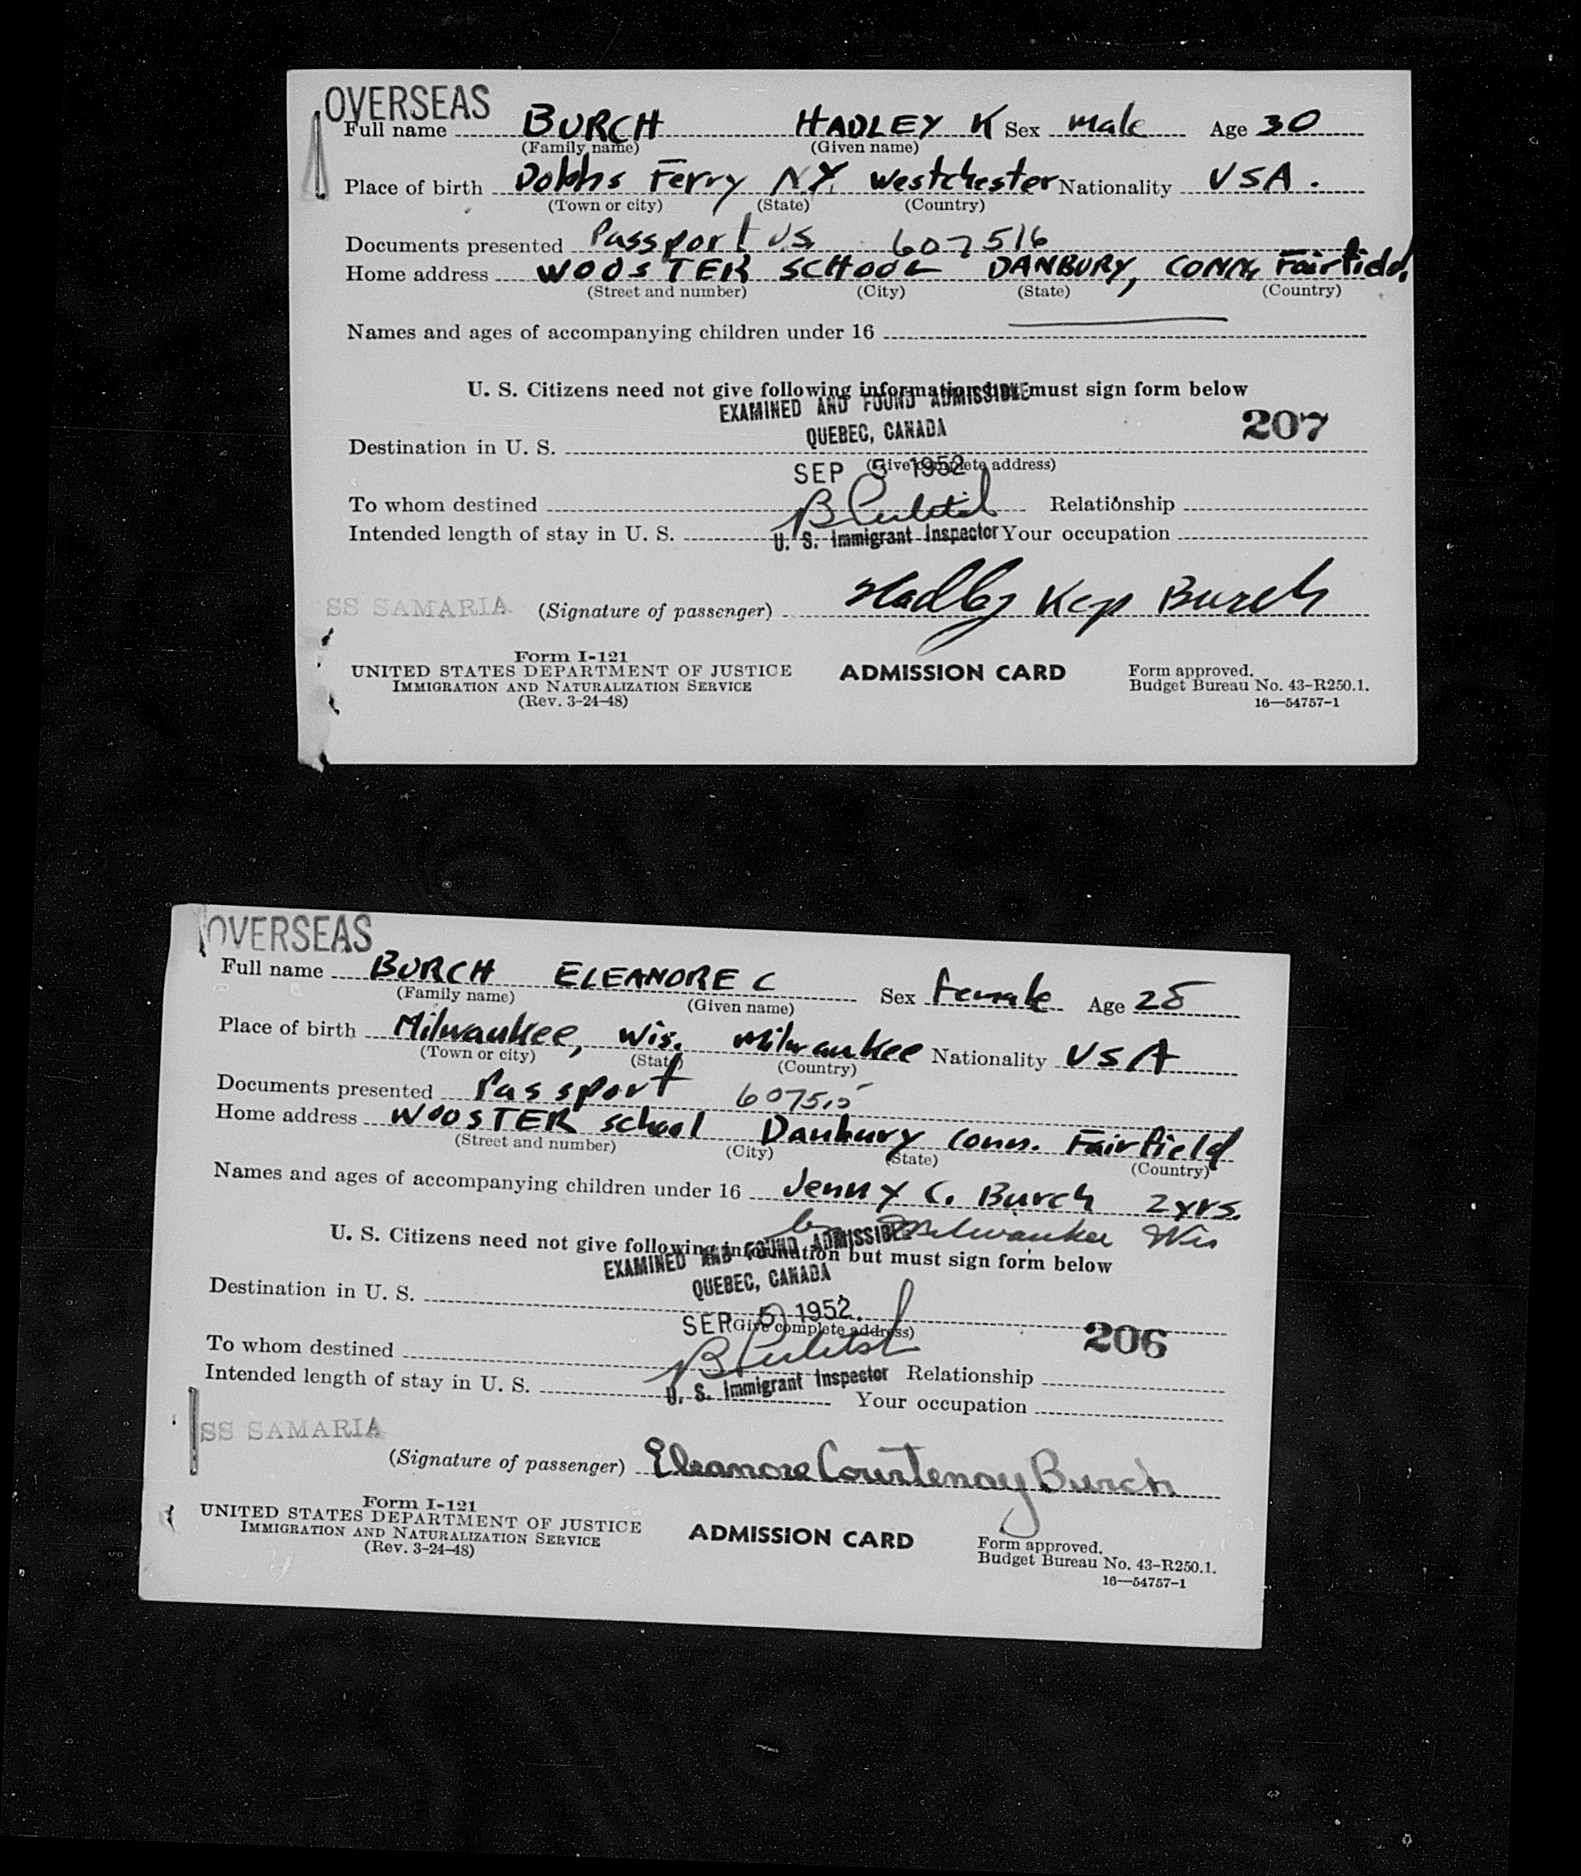 OVERSEAS
Full name BURCH HADLEY K Sex male Age 30
(Family name) (Given name)
Place of birth Dobbs Ferry N.Y. Westchester Nationality USA.
(Town or city) (State) (Country)
Documents presented Passport US 607516
Home address WOOSTER SCHOOL DANBURY, CONN, Fairfield,
(Street and number) (City) (State) (Country)
Names and ages of accompanying children under 16
U. S. Citizens need not give following information but must sign form below
EXAMINED AND FOUND ADMISSIBLE
207
QUEBEC, CANADA
Destination in U. S.
SEP 5 1952 (Give complete address)
To whom destined Relationship
Intended length of stay in U. S. U. S. Immigrant Inspector Your occupation
SS SAMARIA (Signature of passenger) Hadley Kep Burch
Form I-121
UNITED STATES DEPARTMENT OF JUSTICE ADMISSION CARD Form approved.
IMMIGRATION AND NATURALIZATION SERVICE Budget Bureau No. 43-R250.1.
(Rev. 3-24-48) 16—54757-1
OVERSEAS
Full name BURCH ELEANORE C Sex female Age 25
(Family name) (Given name)
Place of birth Milwaukee, Wis. Milwaukee Nationality USA
(Town or city) (State) (Country)
Documents presented Passport 607515
Home address WOOSTER school Danbury Conn. Fairfield
(Street and number) (City) (State) (Country)
Names and ages of accompanying children under 16 Jenny C. Burch 2 yrs.
Milwaukee Wis
U. S. Citizens need not give following information but must sign form below
EXAMINED AND FOUND ADMISSIBLE
QUEBEC, CANADA
Destination in U. S.
SEP 5 1952. (Give complete address) 206
To whom destined Relationship
Intended length of stay in U. S. U. S. Immigrant Inspector Your occupation
SS SAMARIA
(Signature of passenger) Eleanore Courtenay Burch
Form I-121
UNITED STATES DEPARTMENT OF JUSTICE ADMISSION CARD Form approved.
IMMIGRATION AND NATURALIZATION SERVICE Budget Bureau No. 43-R250.1.
(Rev. 3-24-48) 16—54757-1